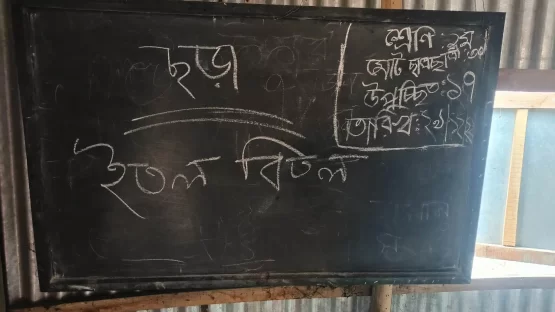 ছড়া
ইতল বিতল
শ্রেণি: ১ম
মোট ছাত্রছাত্রী: ৩০
উপস্থিত: ১৭
তারিখ: